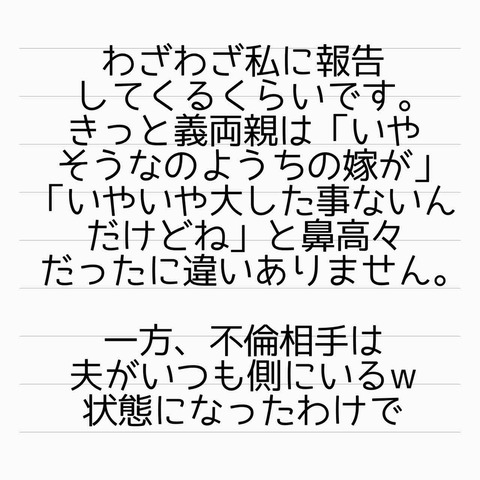 わざわざ私に報告
してくるくらいです。
きっと義両親は「いや
そうなのようちの嫁が」
「いやいや大した事ないん
だけどね」と鼻高々
だったに違いありません。
一方、不倫相手は
夫がいつも側にいるw
状態になったわけで